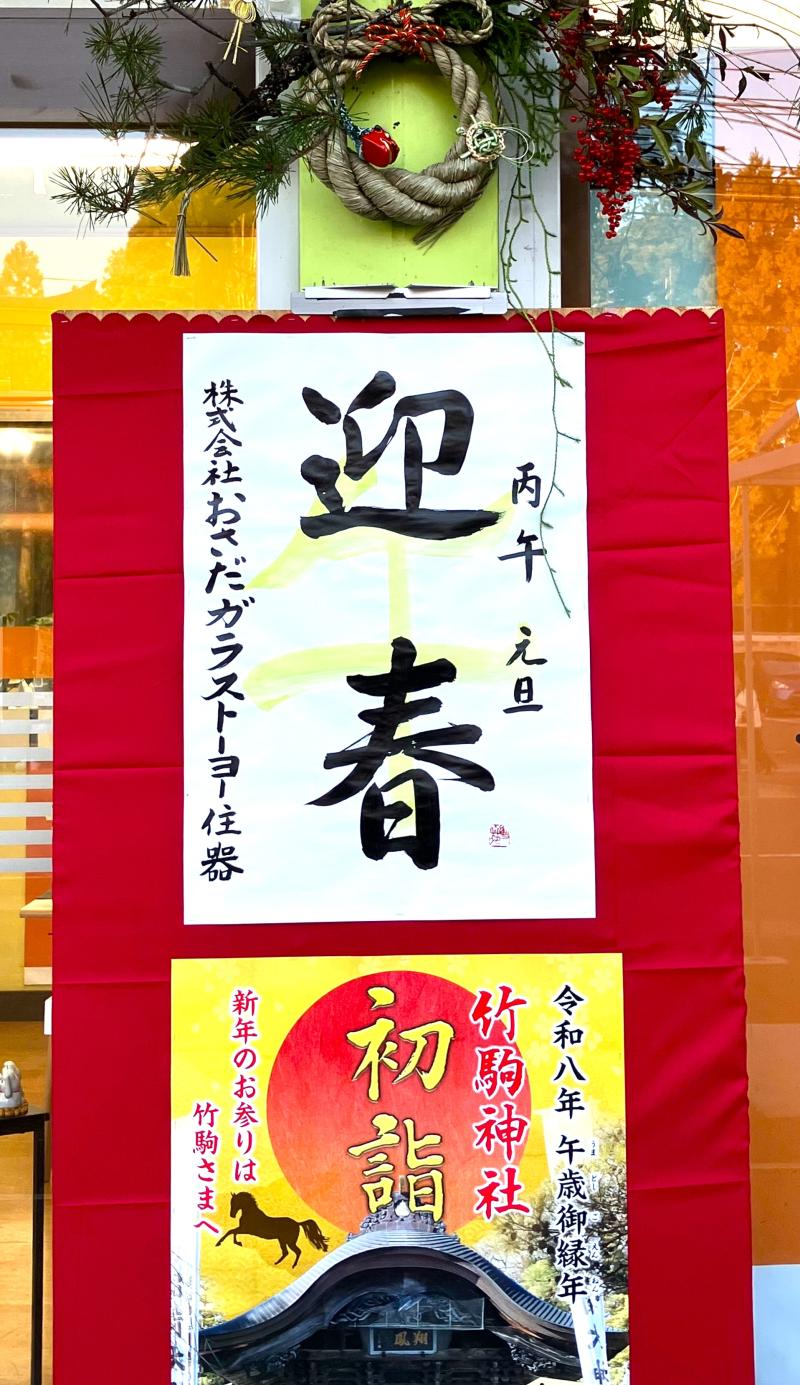 丙午 元旦
迎春
株式会社おさだガラストーヨー住器
令和八年 午歳御縁年
うまどしごえんねん
竹駒神社
初詣
新年のお参りは
竹駒さまへ
鳳翔